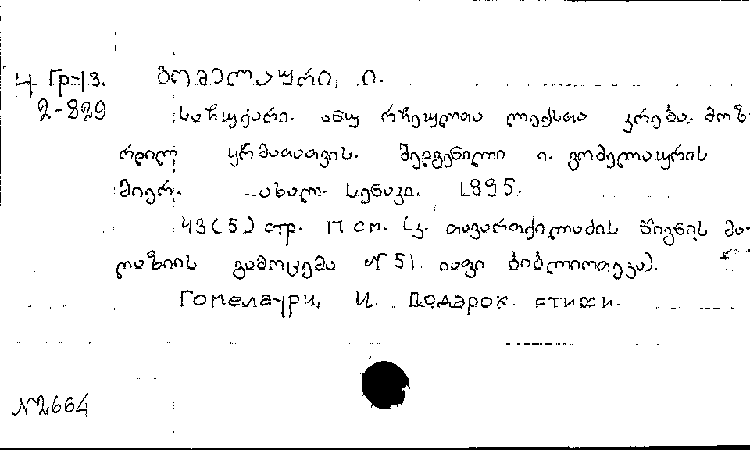 Ч Гр-13. გომელაური, ი.
2-829 საჩუქარი. ანუ რჩეულთა ლექსთა კრება. მოზ-
რდილ ყრმათათვის. შედგენილი ი. გომელაურის
მიერ. ახალ-სენაკი. 1895.
43(5) стр. 17 см. (კ. თავართქილაძის წიგნის მა-
ღაზიის გამოცემა №51. იაფი ბიბლიოთეკა).
Гомелаури, И. Подарок. стихи.
№2664